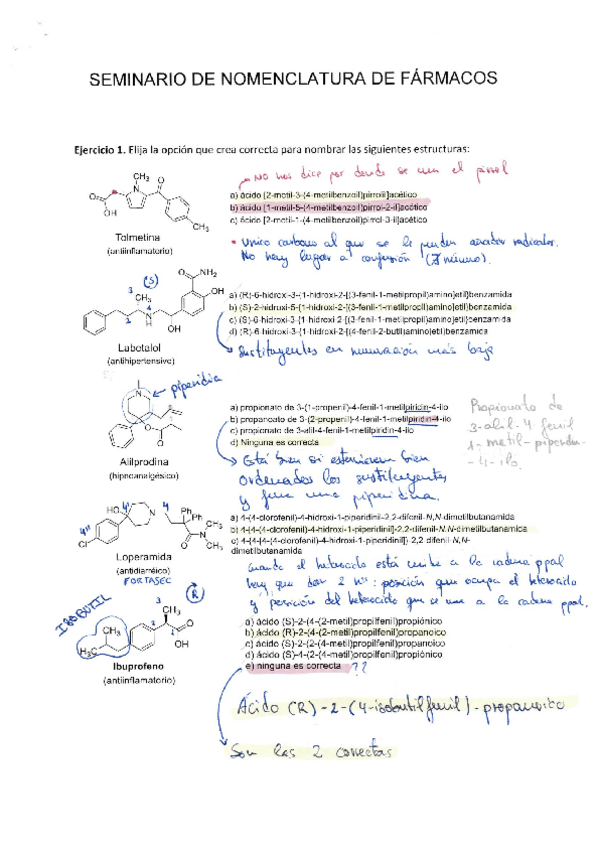 SEMINARIO DE NOMENCLATURA DE FÁRMACOS
Ejercicio 1. Elija la opción que crea correcta para nombrar las siguientes estructuras:
No nos dice por donde se une el pirrol
CH₃
O
N
O
OH
CH₃
Tolmetina
(antiinflamatorio)
a) ácido [2-metil-3-(4-metilbenzoil)pirrolil]acético
b) ácido [1-metil-5-(4-metilbenzoil)pirrol-2-il]acético
c) ácido [2-metil-1-(4-metilbenzoil)pirrol-3-il]acético
• Único carbono al que se le pueden añadir radicales.
No hay lugar a confusión
(S)
3
CH₃
2
N
H
4
OH
O
NH₂
OH
Labotalol
(antihipertensivo)
a) (R)-6-hidroxi-3-{1-hidroxi-2-[(3-fenil-1-metilpropil)amino]etil}benzamida
b) (S)-2-hidroxi-5-{1-hidroxi-2-[(3-fenil-1-metilpropil)amino]etil}benzamida
c) (S)-6-hidroxi-3-{1-hidroxi-2-[(3-fenil-1-metilpropil)amino]etil}benzamida
d) (R)-6-hidroxi-3-{1-hidroxi-2-[(4-fenil-2-butil)amino]etil}benzamida
Sustituyentes en numeración más baja
piperidina
N
O
O
Alilprodina
(hipnoanalgésico)
a) propionato de 3-(1-propenil)-4-fenil-1-metilpiridin-4-ilo
b) propanoato de 3-(2-propenil)-4-fenil-1-metilpiridin-4-ilo
c) propionato de 3-alil-4-fenil-1-metilpiridin-4-ilo
d) Ninguna es correcta
Propionato de
3-alil-4 fenil
1-metil-piperidin-
-4-ilo.
Está bien si estuvieran bien
ordenados los sustituyentes
y fuera una piperidina.
HO
4'
1'
4
4''
Cl
N
Ph
Ph
CH₃
N
O
CH₃
Loperamida
(antidiarréico)
FORTASEC
a) 4-(4-(clorofenil)-4-hidroxi-1-piperidinil-2,2-difenil-N,N-dimetilbutanamida
b) 4-[4-(4-clorofenil)-4-hidroxi-1-piperidinil]-2,2-difenil-N,N-dimetilbutanamida
c) 4-{4-[4-(4-clorofenil)-4-hidroxi-1-piperidinil]}-2,2 difenil-N,N-
dimetilbutanamida
Cuando el heterociclo está unido a la cadena ppal
hay que dar 2 nº: posición que ocupa el heterociclo
y posición del heterociclo que se une a la cadena ppal.
ISOBUTIL
(R)
3
CH₃
2
1
O
OH
CH₃
H₃C
Ibuprofeno
(antiinflamatorio)
a) ácido (S)-2-(4-(2-metil)propilfenil)propiónico
b) ácido (R)-2-(4-(2-metil)propilfenil)propanoico
c) ácido (S)-2-(4-(2-metil)propilfenil)propanoico
d) ácido (S)-4-(2-(4-metil)propilfenil)propiónico
e) ninguna es correcta. ??
Ácido (R)-2-(4-isobutilfenil)-propanoico
Son las 2 correctas